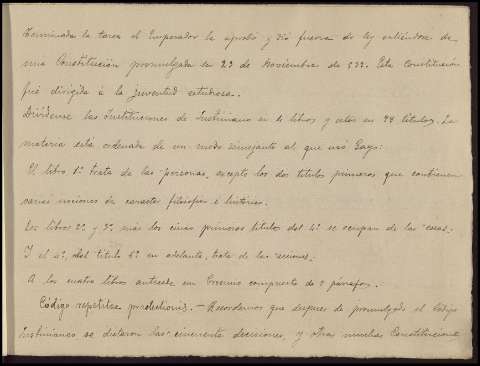 Terminada la tarea el Emperador la aprobó y dió fuerza de ley valiéndose de
una Constitución promulgada en 23 de Noviembre de 533. Esta Constitución
fué dirigida á la juventud estudiosa.
Divídense las Instituciones de Justiniano en 4 libros y estos en títulos. La
materia está ordenada de un modo semejante al que usó Gayo:
El libro 1º trata de las personas, excepto los dos títulos primeros que contienen
varias nociones de carácter filosófico é histórico.
Los libros 2º y 3º más los cinco primeros títulos del 4º se ocupan de las cosas:
Y el 4º, del título 6º en adelante, trata de las acciones.
A los cuatro libros antecede un Proemio compuesto de 7 párrafos.
Código repetitæ prælectionis. — Recordamos que despues de promulgado el Código
Justinianeo se dictaron las cincuenta decisiones, y otras muchas Constituciones